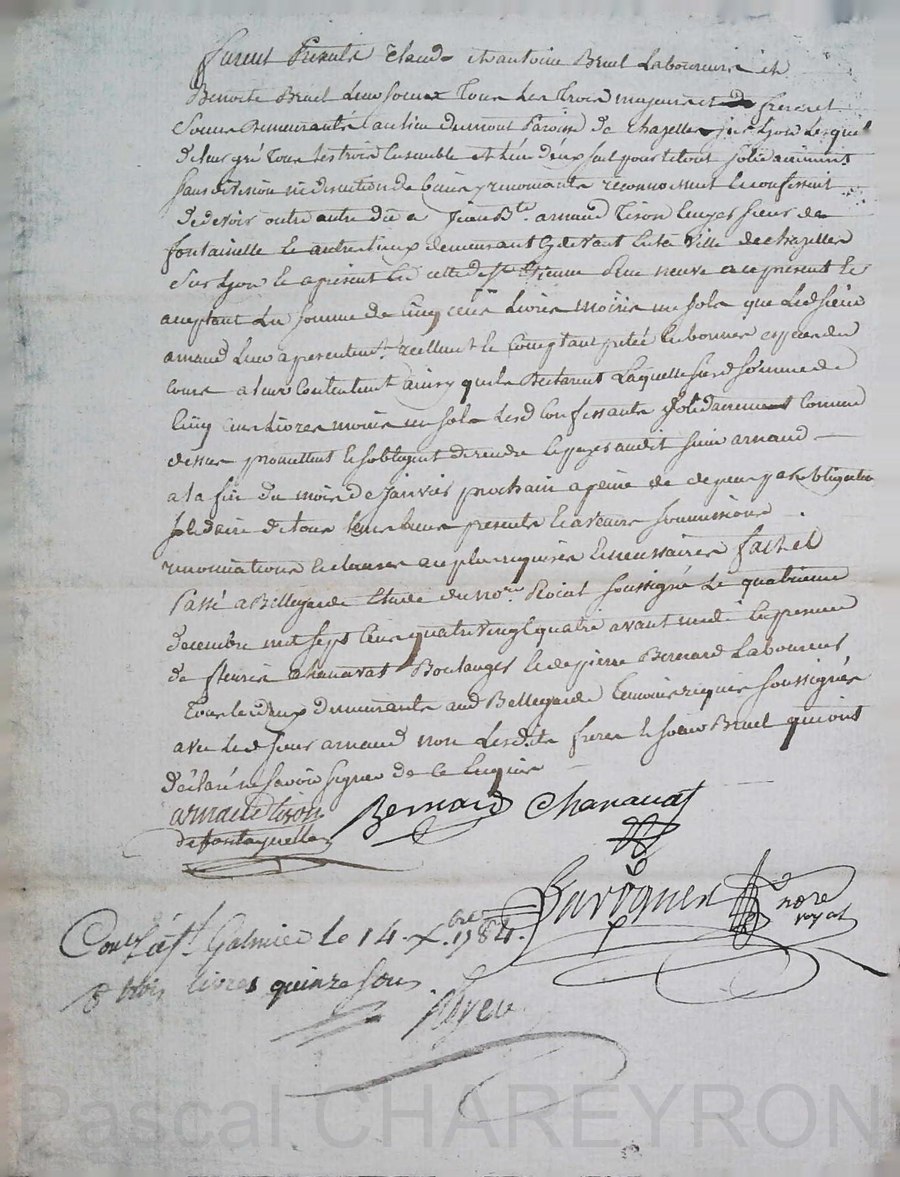 furent Presents Claude et antoine Bruel Laboureurs et
Benoite Bruel Leur Soeur Tous Les Trois majeurs et frere et
Soeur Demeurants au lieu Dumont Paroisse De Chazelles sur Lyon Lesquels
De leur gré Tous Les trois Ensemble et L'un d'eux seul pour le tout solidairement
sans division ni discution de biens y renoncants reconnoissent et confessent
De devoir outre autre dû a Jean Bte. arnaud Tison sieur de
fontainelle et autres lieux demeurant cydevant Ville de chazelles
sur Lyon et apresent En cette de St. Etienne Rue neuve a ce present et
acceptant La somme de cinq cens Livres moins un sols que Led sieur
arnaud Leur a presentement reellement et comptant pretée En bonnes especes du
cours a leur Contentement ainsy qu'ils Declarent Laquelle susd somme de
Cinq cens Livres moins un sols Lesd Confessants Solidairement Comme
dessus promettent et s'obligent de rendre et payer audit sieur arnaud
a la fin du mois de Janvier prochain a peine de depens par obligation
solidaire de tous leurs biens presents et avenirs soumissions
renonciations et clauses au plus requises et necessaires fait et
Passé a Bellegarde Etude du nore. Royal soussigné Le quatrieme
decembre mil sept cens quatre vingt quatre avant midi En presence
de fleurie chanavat Boulanger et de pierre Bernard Laboureur
Tous les deux demeurants aud Bellegarde Temoins requis soussignés
avec Led sieur arnaud non Lesdits freres et soeur Bruel qui ont
Déclaré ne savoir signer de ce Enquis
arnaud tison Bernard Chanavat
de fontaynelle
nore
royal
Conlé à St. Galmier le 14. Xbre 1784.
R trois livres quinze sous
Pascal CHAREYRON